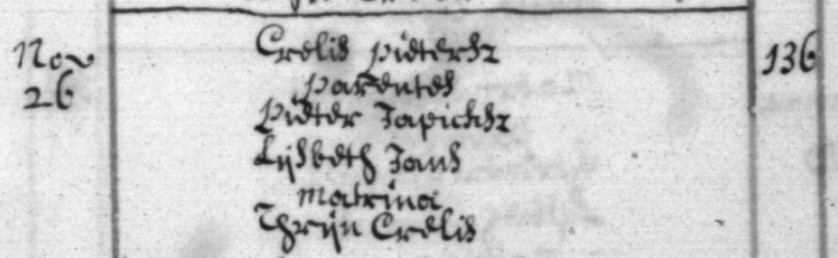 Nov 26
Crelis pietersz
parentes
Pieter Japicksz
Lijsbeth Jans
matrina
Thrijn Crelis
136